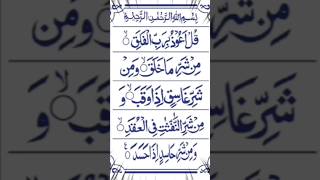 بِسْمِ اللهِ الرَّحْمٰنِ الرَّحِيْمِ
قُلْ اَعُوْذُ بِرَبِّ الْفَلَقِ ۙ
مِنْ شَرِّ مَا خَلَقَ ۙ وَمِنْ
شَرِّ غَاسِقٍ اِذَا وَقَبَ ۙ وَ
مِنْ شَرِّ النَّفّٰثٰتِ فِی الْعُقَدِ ۙ
وَمِنْ شَرِّ حَاسِدٍ اِذَا حَسَدَ ۠